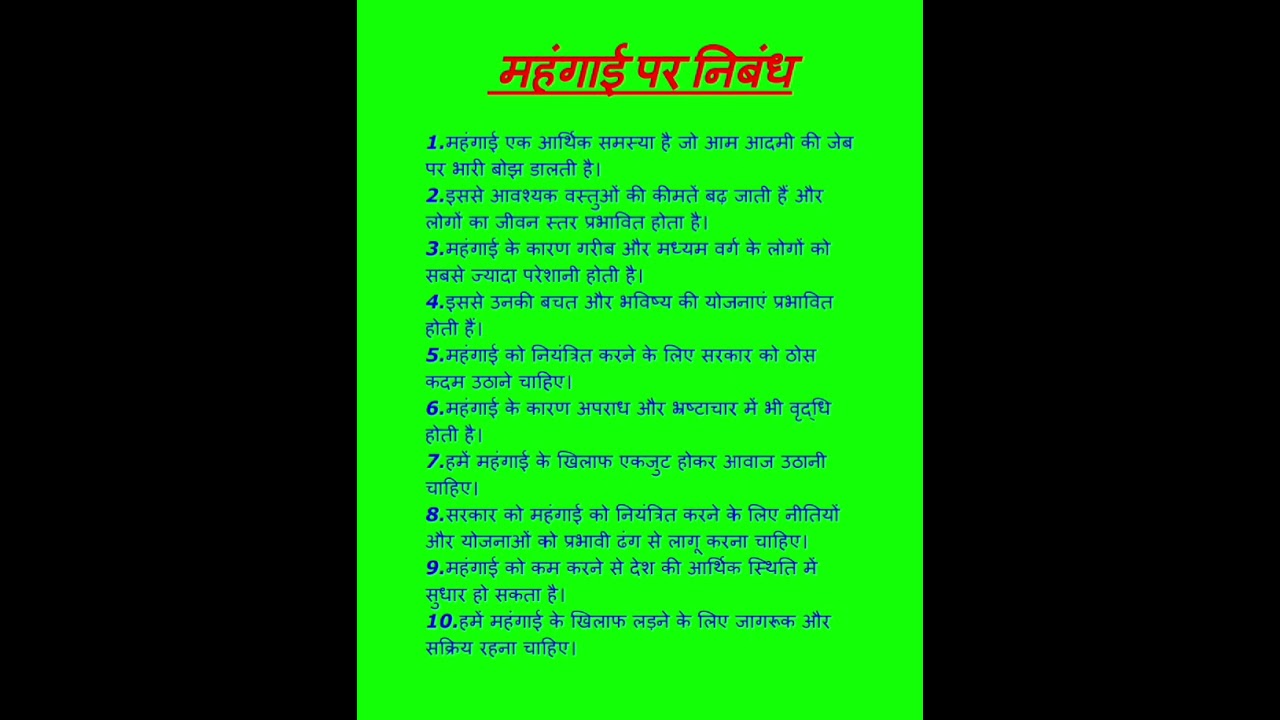 महंगाई पर निबंध
1.महंगाई एक आर्थिक समस्या है जो आम आदमी की जेब
पर भारी बोझ डालती है।
2.इससे आवश्यक वस्तुओं की कीमतें बढ़ जाती हैं और
लोगों का जीवन स्तर प्रभावित होता है।
3.महंगाई के कारण गरीब और मध्यम वर्ग के लोगों को
सबसे ज्यादा परेशानी होती है।
4.इससे उनकी बचत और भविष्य की योजनाएं प्रभावित
होती हैं।
5.महंगाई को नियंत्रित करने के लिए सरकार को ठोस
कदम उठाने चाहिए।
6.महंगाई के कारण अपराध और भ्रष्टाचार में भी वृद्धि
होती है।
7.हमें महंगाई के खिलाफ एकजुट होकर आवाज उठानी
चाहिए।
8.सरकार को महंगाई को नियंत्रित करने के लिए नीतियों
और योजनाओं को प्रभावी ढंग से लागू करना चाहिए।
9.महंगाई को कम करने से देश की आर्थिक स्थिति में
सुधार हो सकता है।
10.हमें महंगाई के खिलाफ लड़ने के लिए जागरूक और
सक्रिय रहना चाहिए।